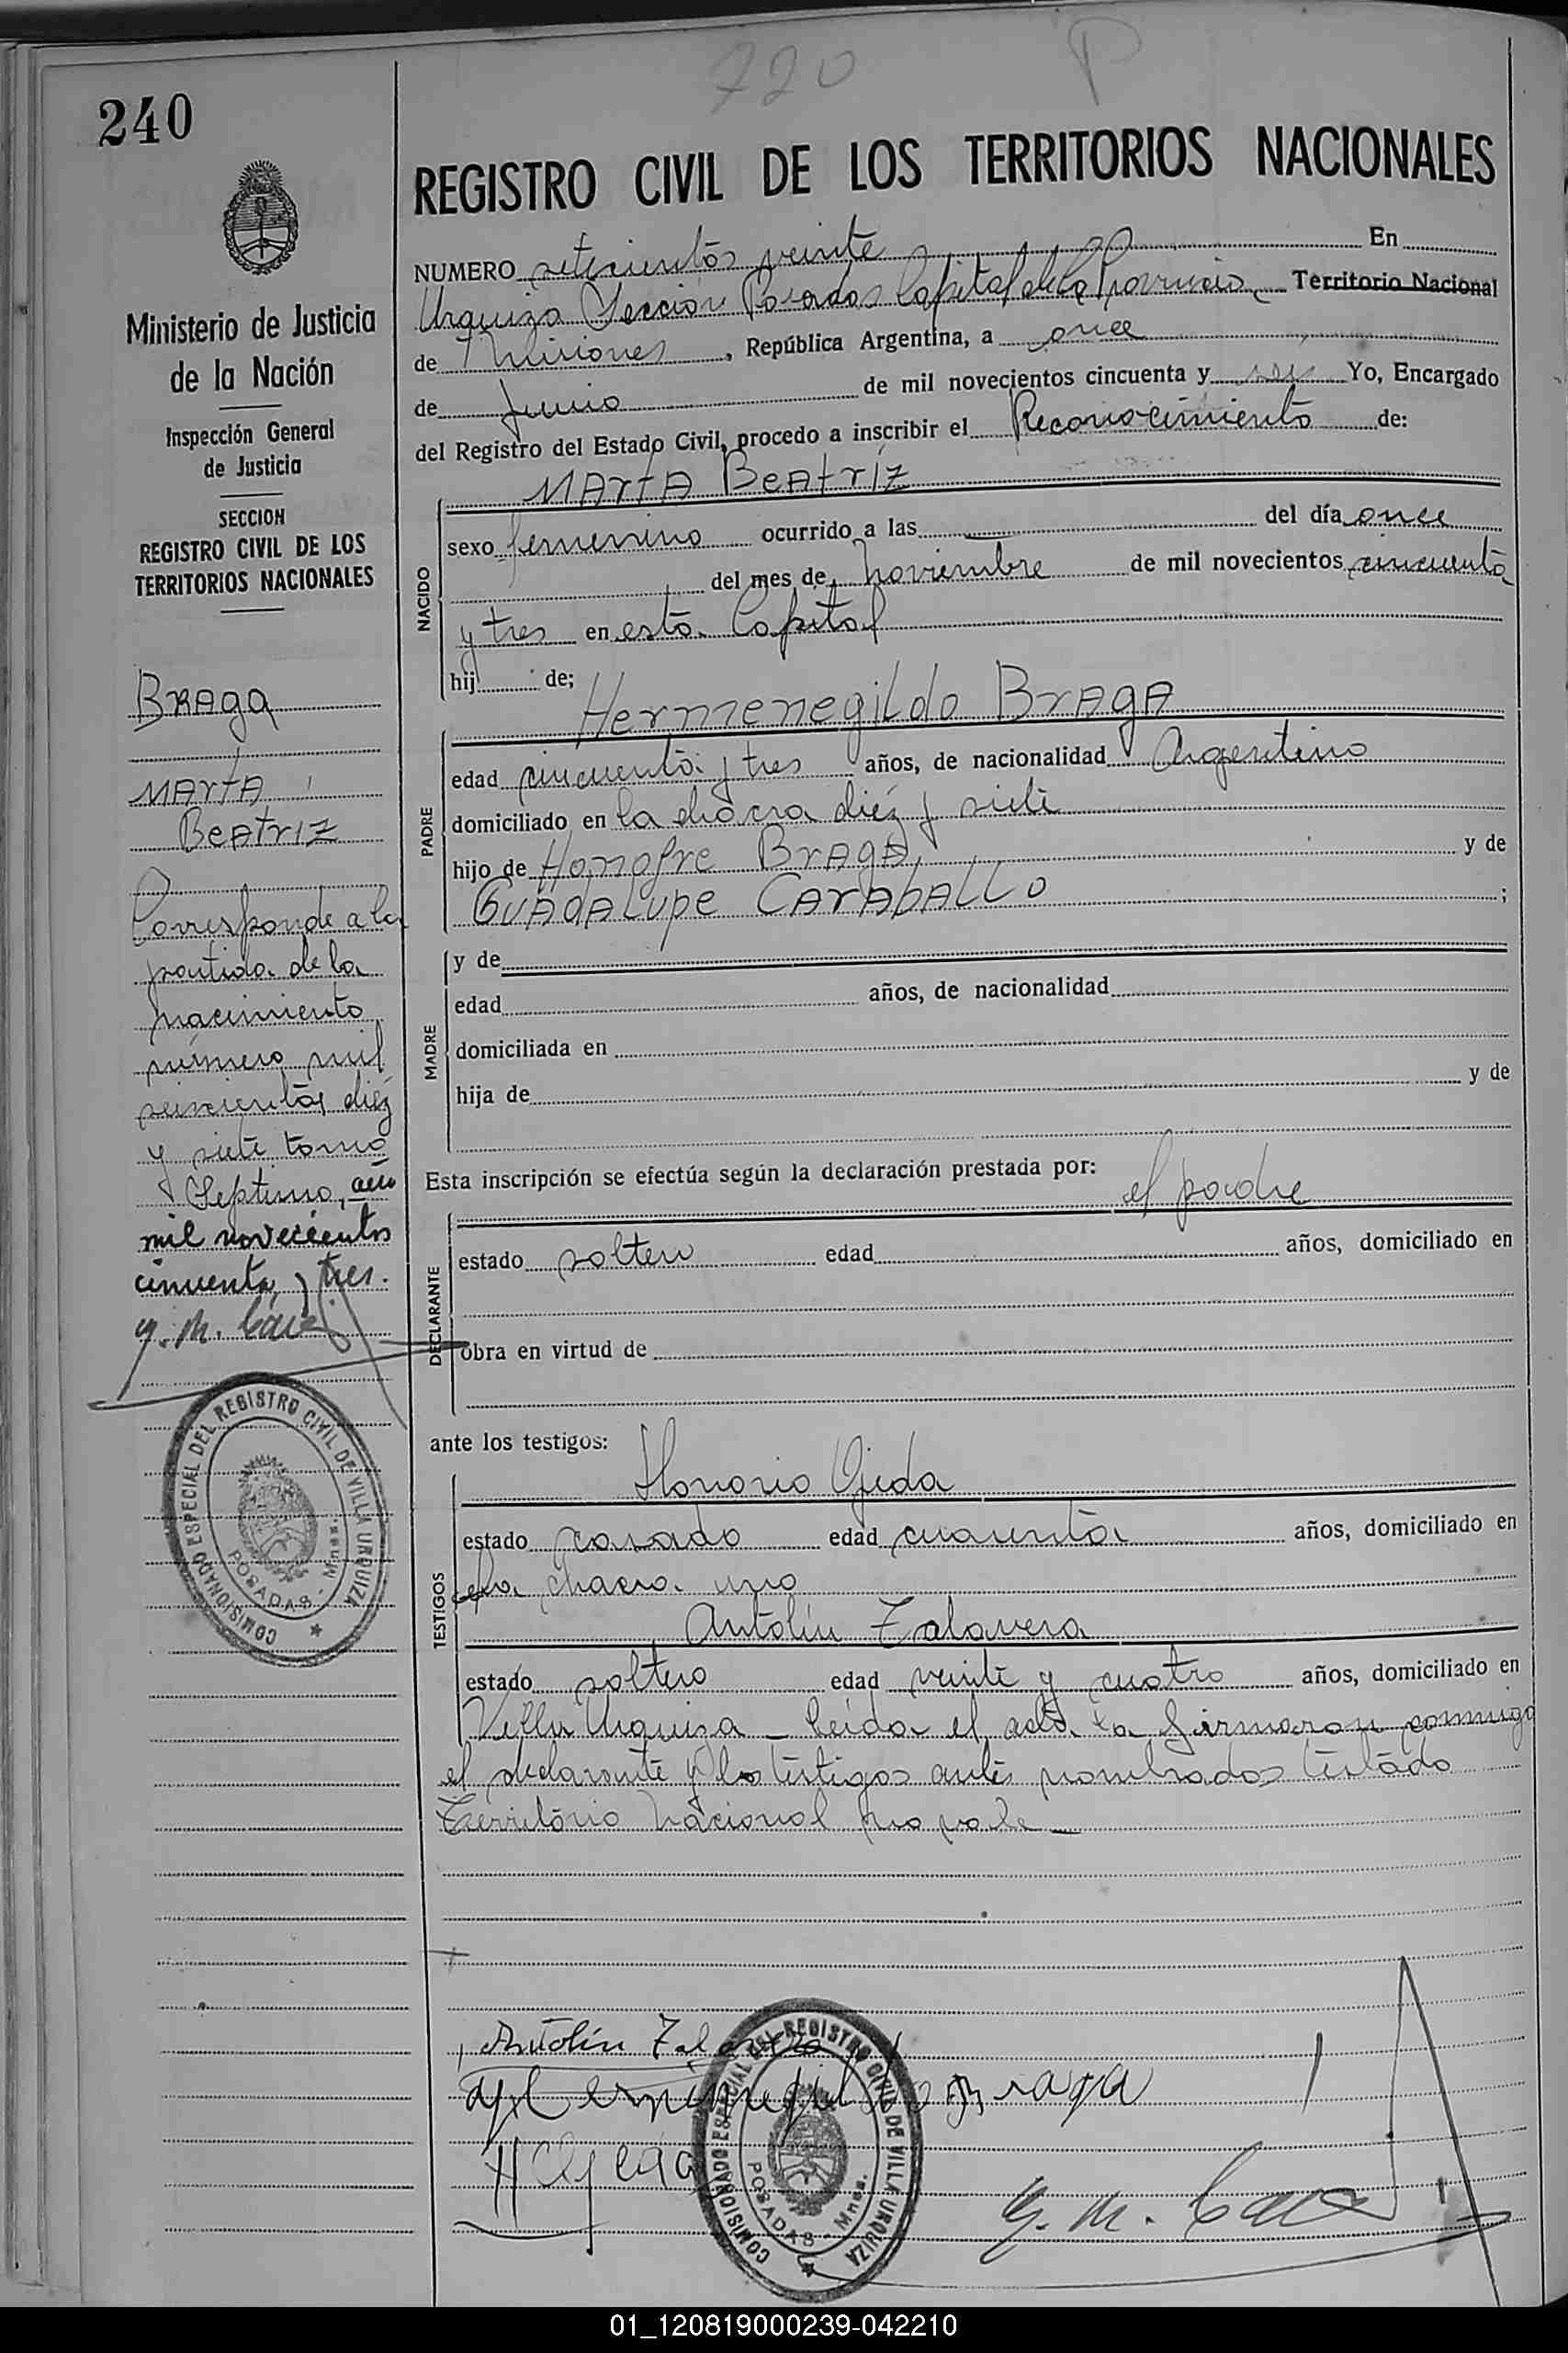 720 P
240
REGISTRO CIVIL DE LOS TERRITORIOS NACIONALES
Ministerio de Justicia
de la Nación
Inspección General
de Justicia
SECCION
REGISTRO CIVIL DE LOS
TERRITORIOS NACIONALES
Braga
Marta
Beatriz
Corresponde a la
partida de la
nacimiento
número mil
seiscientos diéz
y siete tomo
Septimo, año
mil novecientos
cincuenta y tres.
COMISIONADO ESPECIAL DEL REGISTRO CIVIL DE VILLA URQUIZA
POSADAS - Mnes.
NUMERO setecientos veinte En
Urquiza Sección Posadas Capital de la Provincia Territorio Nacional
de Misiones, República Argentina, a once
de Junio de mil novecientos cincuenta y seis Yo, Encargado
del Registro del Estado Civil, procedo a inscribir el Reconocimiento de:
Marta Beatríz
NACIDO
sexo femenino ocurrido a las del día once
del mes de noviembre de mil novecientos cincuenta
y tres en esta Capital
hij de;
Hermenegildo Braga
PADRE
edad cincuenta y tres años, de nacionalidad Argentino
domiciliado en la chacra diéz y siete
hijo de Honofre Braga, y de
Guadalupe Caraballo ;
MADRE
y de
edad años, de nacionalidad
domiciliada en
hija de y de
Esta inscripción se efectúa según la declaración prestada por: el padre
DECLARANTE
estado soltero edad años, domiciliado en
obra en virtud de
ante los testigos:
Honorio Ojeda
TESTIGOS
estado casado edad cuarenta años, domiciliado en
la chacra uno
Antolín Talavera
estado soltero edad veinte y cuatro años, domiciliado en
Villa Urquiza _ Leída el acta la firmaron conmigo
el declarante y los testigos antes nombrados testado
Territorio Nacional no vale _
Antolín Talavera
Hermenegildo Braga
H Ojeda
COMISIONADO ESPECIAL DEL REGISTRO CIVIL DE VILLA URQUIZA
POSADAS - Mnes.
01_120819000239-042210